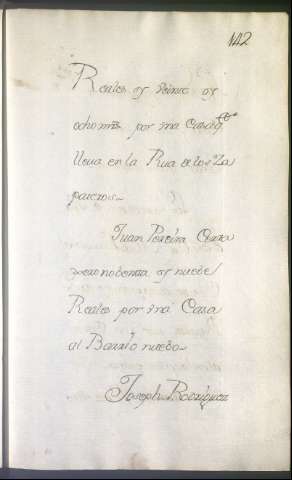 142
Reales y veinte y
ocho mrs. por vna Casa q
lleua en la Rua de los Za
pateros
Juan Pereira
nobenta y nuebe
Reales por vna Casa
al Barrio nuebo
Joseph Rodriguez